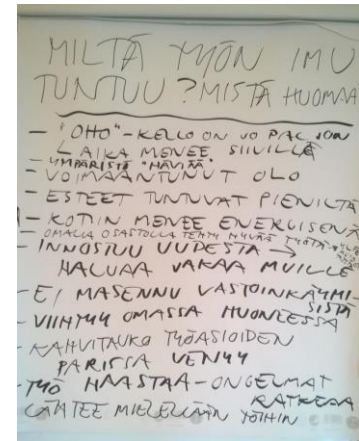 MILTÄ TYÖN IMU
TUNTUU? MISTÄ HUOMAA
- "OHO" - KELLO ON JO PALJON
LAIKA MENEE SIIVILLÄ
- YMPÄRISTÖ "HÄVIÄÄ"
- VOIMAANTUNUT OLO
- ESTEET TUNTUVAT PIENILTÄ
- KOTIIN MENEE ENERGISENÄ
- OMALLA OSASTOLLA TEHTY HYVÄÄ TYÖTÄ
- INNOSTUU UUDESTA →
HALUAA JAKAA MUILLE
- EI MASENNU VASTOINKÄYMI-
SISTÄ
- VIIHTYY OMASSA HUONEESSA
- KAHVITAUKO TYÖASIOIDEN
PARISSA VENYY
- TYÖ HAASTAA - ONGELMAT
RATKEAA
LÄHTEE MIELELLÄÄN TÖIHIN